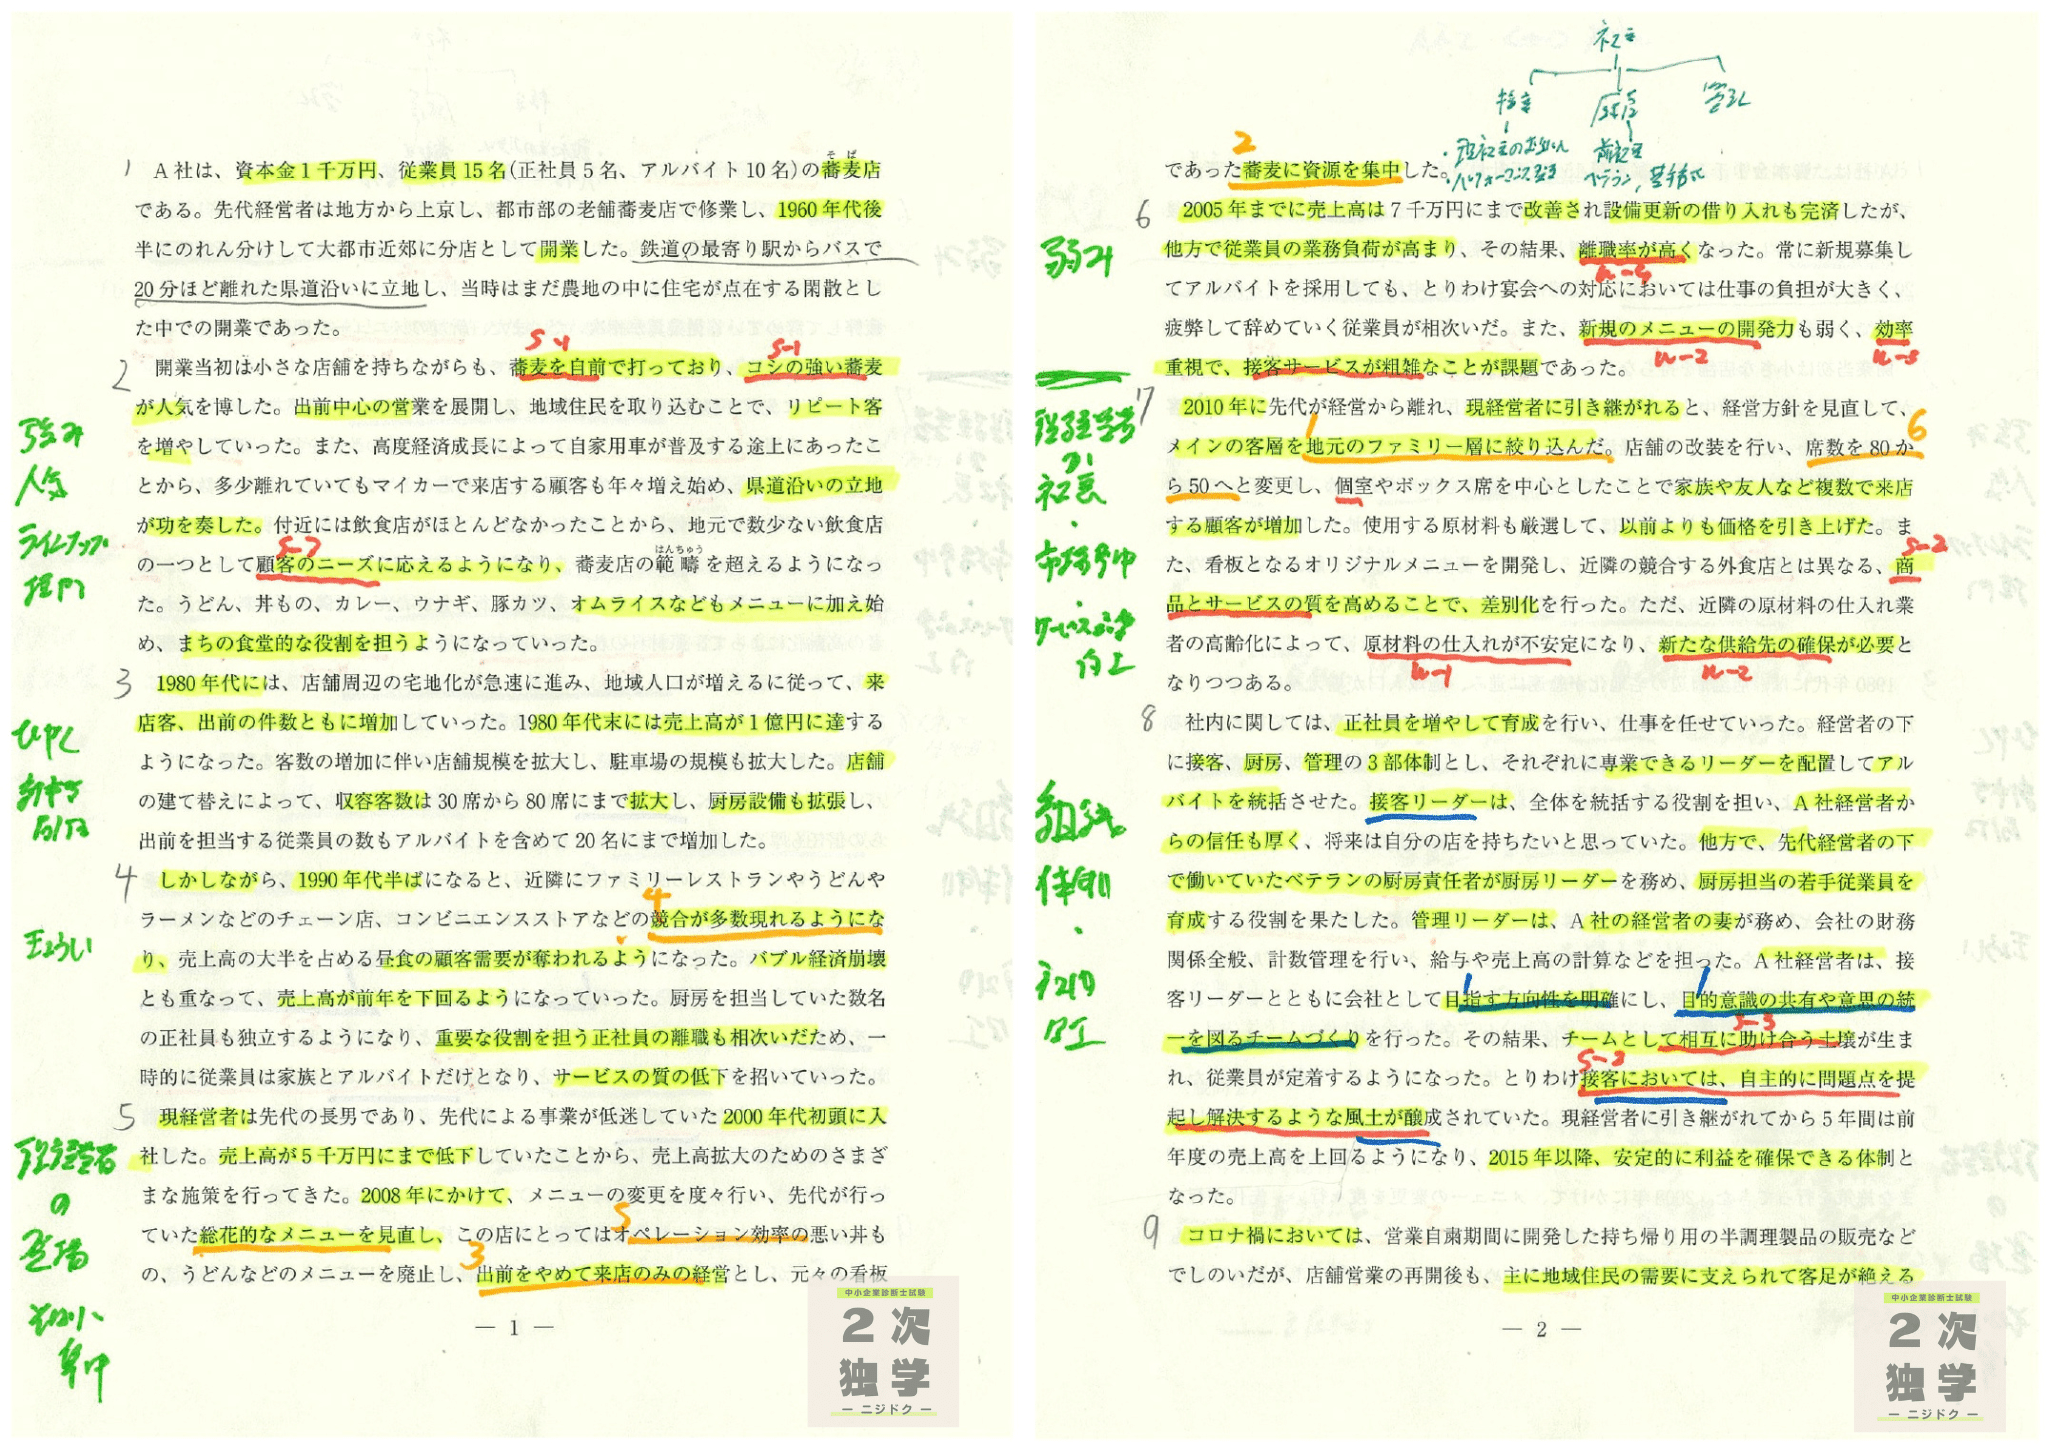 1 A社は、資本金1千万円、従業員15名(正社員5名、アルバイト10名)の蕎麦店
そば
である。先代経営者は地方から上京し、都市部の老舗蕎麦店で修業し、1960年代後
半にのれん分けして大都市近郊に分店として開業した。鉄道の最寄り駅からバスで
20分ほど離れた県道沿いに立地し、当時はまだ農地の中に住宅が点在する閑散とし
た中での開業であった。
S-1 S-1
2 開業当初は小さな店舗を持ちながらも、蕎麦を自前で打っており、コシの強い蕎麦
が人気を博した。出前中心の営業を展開し、地域住民を取り込むことで、リピート客
強み
を増やしていった。また、高度経済成長によって自家用車が普及する途上にあったこ
人気
とから、多少離れていてもマイカーで来店する顧客も年々増え始め、県道沿いの立地
が功を奏した。付近には飲食店がほとんどなかったことから、地元で数少ない飲食店
ラインアップ
はんちゅう
の一つとして顧客のニーズに応えるようになり、蕎麦店の範疇を超えるようになっ
た。うどん、丼もの、カレー、ウナギ、豚カツ、オムライスなどもメニューに加え始
め、まちの食堂的な役割を担うようになっていった。
3 1980年代には、店舗周辺の宅地化が急速に進み、地域人口が増えるに従って、来
店客、出前の件数ともに増加していった。1980年代末には売上高が1億円に達する
ようになった。客数の増加に伴い店舗規模を拡大し、駐車場の規模も拡大した。店舗
の建て替えによって、収容客数は30席から80席にまで拡大し、厨房設備も拡張し、
出前を担当する従業員の数もアルバイトを含めて20名にまで増加した。
4 しかしながら、1990年代半ばになると、近隣にファミリーレストランやうどんや
4
ラーメンなどのチェーン店、コンビニエンスストアなどの競合が多数現れるようにな
り、売上高の大半を占める昼食の顧客需要が奪われるようになった。バブル経済崩壊
とも重なって、売上高が前年を下回るようになっていった。厨房を担当していた数名
の正社員も独立するようになり、重要な役割を担う正社員の離職も相次いだため、一
時的に従業員は家族とアルバイトだけとなり、サービスの質の低下を招いていった。
5 現経営者は先代の長男であり、先代による事業が低迷していた2000年代初頭に入
社した。売上高が5千万円にまで低下していたことから、売上高拡大のためのさまざ
現経営者
の
登場
まな施策を行ってきた。2008年にかけて、メニューの変更を度々行い、先代が行っ
5
ていた総花的なメニューを見直し、この店にとってはオペレーション効率の悪い丼も
3
の、うどんなどのメニューを廃止し、出前をやめて来店のみの経営とし、元々の看板
集中
— 1 —
中小企業診断士試験
2次
独学
— ニジドク —
社長
2
であった蕎麦に資源を集中した。
6 2005年までに売上高は7千万円にまで改善され設備更新の借り入れも完済したが、
弱み
他方で従業員の業務負荷が高まり、その結果、離職率が高くなった。常に新規募集し
てアルバイトを採用しても、とりわけ宴会への対応においては仕事の負担が大きく、
疲弊して辞めていく従業員が相次いだ。また、新規のメニューの開発力も弱く、効率
重視で、接客サービスが粗雑なことが課題であった。
7 2010年に先代が経営から離れ、現経営者に引き継がれると、経営方針を見直して、
現経営者
1 6
メインの客層を地元のファミリー層に絞り込んだ。店舗の改装を行い、席数を80か
ら50へと変更し、個室やボックス席を中心としたことで家族や友人など複数で来店
する顧客が増加した。使用する原材料も厳選して、以前よりも価格を引き上げた。ま
S-2
た、看板となるオリジナルメニューを開発し、近隣の競合する外食店とは異なる、商
品とサービスの質を高めることで、差別化を行った。ただ、近隣の原材料の仕入れ業
者の高齢化によって、原材料の仕入れが不安定になり、新たな供給先の確保が必要と
なりつつある。
8 社内に関しては、正社員を増やして育成を行い、仕事を任せていった。経営者の下
に接客、厨房、管理の3部体制とし、それぞれに専業できるリーダーを配置してアル
組織
バイトを統括させた。接客リーダーは、全体を統括する役割を担い、A社経営者か
らの信任も厚く、将来は自分の店を持ちたいと思っていた。他方で、先代経営者の下
体制
で働いていたベテランの厨房責任者が厨房リーダーを務め、厨房担当の若手従業員を
育成する役割を果たした。管理リーダーは、A社の経営者の妻が務め、会社の財務
関係全般、計数管理を行い、給与や売上高の計算などを担った。A社経営者は、接
1 1
客リーダーとともに会社として目指す方向性を明確にし、目的意識の共有や意思の統
一を図るチームづくりを行った。その結果、チームとして相互に助け合う土壌が生ま
S-3
れ、従業員が定着するようになった。とりわけ接客においては、自主的に問題点を提
起し解決するような風土が醸成されていた。現経営者に引き継がれてから5年間は前
年度の売上高を上回るようになり、2015年以降、安定的に利益を確保できる体制と
なった。
9 コロナ禍においては、営業自粛期間に開発した持ち帰り用の半調理製品の販売など
でしのいだが、店舗営業の再開後も、主に地域住民の需要に支えられて客足が絶える
— 2 —
中小企業診断士試験
2次
独学
— ニジドク —